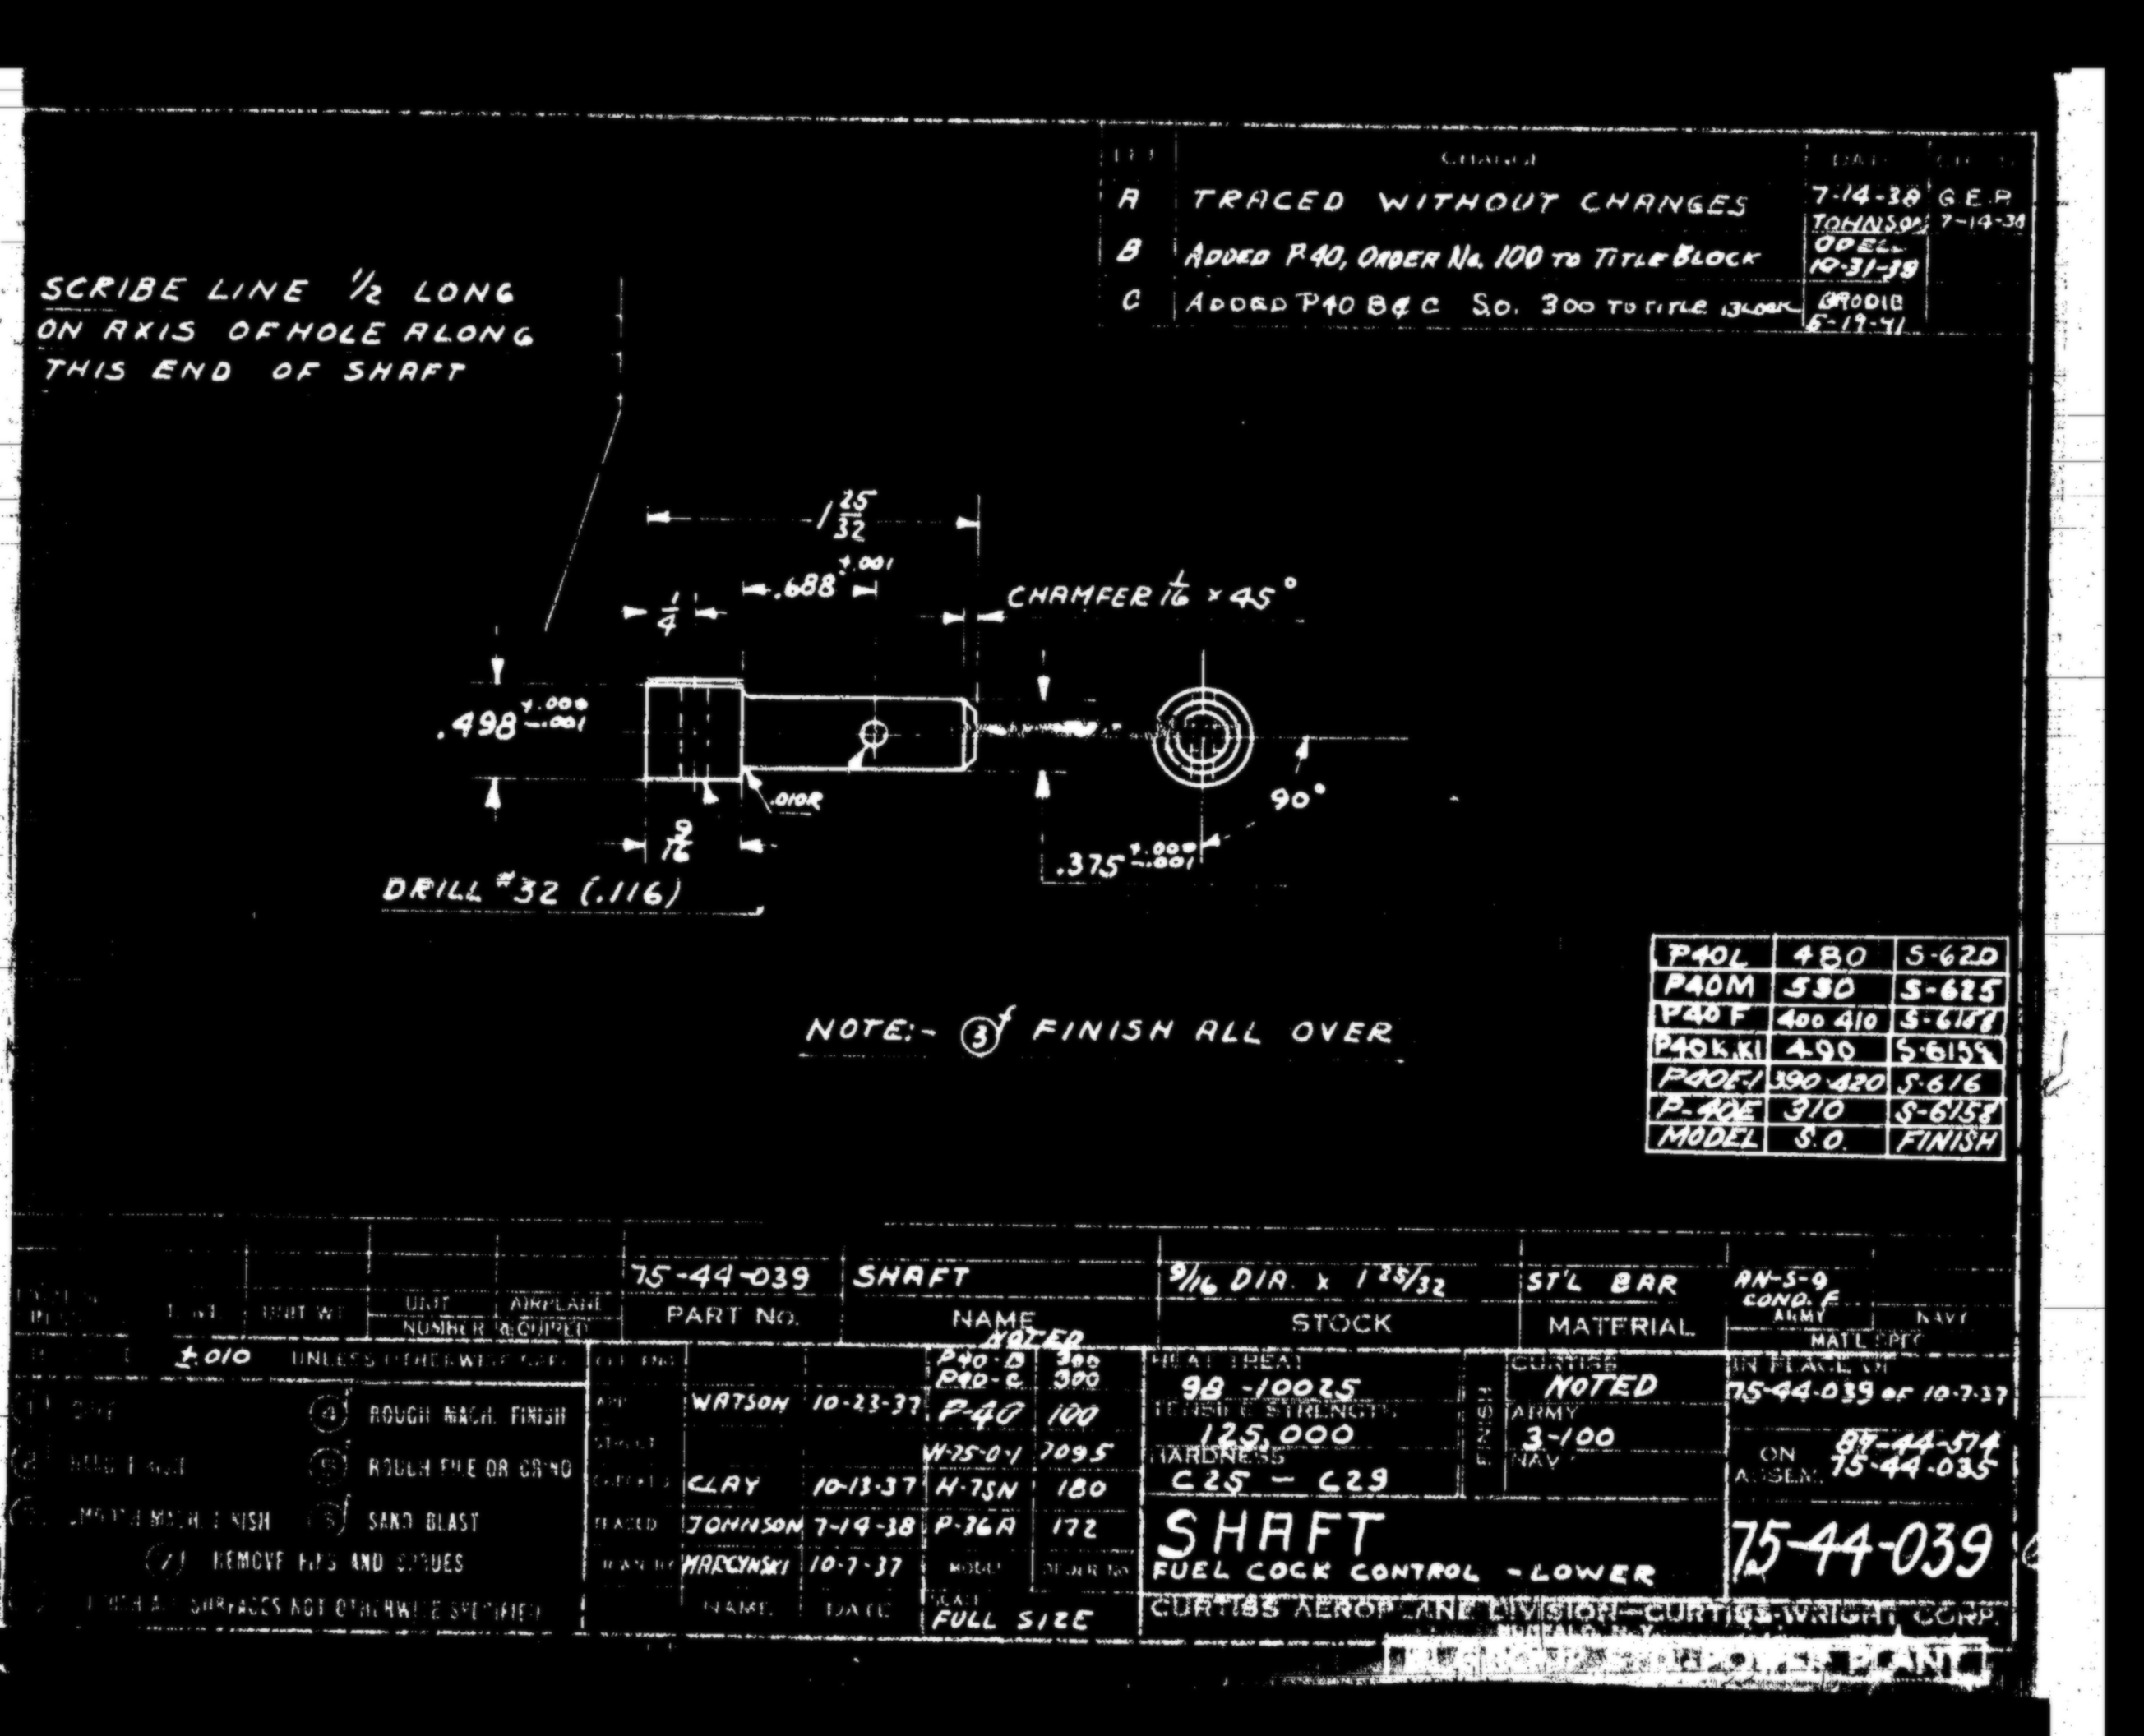 CHANGE
A TRACED WITHOUT CHANGES 7-14-38 G.E.R.
JOHNSON 7-14-38
B ADDED P-40, ORDER No. 100 TO TITLE BLOCK ODELL
10-31-38
C ADDED P40 B & C S.O. 300 TO TITLE BLOCK BRODIE
5-19-41
SCRIBE LINE 1/2 LONG
ON AXIS OF HOLE ALONG
THIS END OF SHAFT
1 25/32
.688 ±.001
1/4
CHAMFER 1/16 x 45°
.498 +.000 -.001
.010R
90°
9/16
.375 +.000 -.001
DRILL #32 (.116)
P40L 480 S-620
P40M 530 S-625
P40F 400 410 S-6158
P40K,K1 490 S-6158
P40E-1 390-420 S-616
P-40E 310 S-6158
MODEL S.O. FINISH
NOTE:- 3 f FINISH ALL OVER
75-44-039 SHAFT 9/16 DIA. x 1 25/32 ST'L BAR AN-S-9
COND. F
UNIT WT. UNIT AIRPLANE PART NO. NAME STOCK MATERIAL ARMY NAVY
NUMBER REQUIRED MAT'L SPEC.
NOTED
±.010 UNLESS OTHERWISE SPEC.
P40-B 300
P40-C 300
HEAT TREAT
98-10025
CURTISS
NOTED
IN PLACE OF
75-44-039 OF 10-7-37
4 ROUGH MACH. FINISH
WATSON 10-23-37 P-40 100
TENSILE STRENGTH
125,000
ARMY
3-100
FINISH
H-75-O-1 7095
HARDNESS
C25 - C29
NAVY
ON ASSEM.
87-44-514
75-44-035
5 ROUGH FILE OR GRIND
CHECKED CLAY 10-13-37 H-75N 180
SMOOTH MACH. FINISH 6 SAND BLAST
TRACED JOHNSON 7-14-38 P-36A 172
7 REMOVE FINS AND SPRUES
DRAWN BY MARCYNSKI 10-7-37 MODEL ORDER NO.
FINISH ALL SURFACES NOT OTHERWISE SPECIFIED
NAME DATE
SCALE
FULL SIZE
SHAFT
FUEL COCK CONTROL - LOWER
75-44-039
CURTISS AEROPLANE DIVISION-CURTISS-WRIGHT CORP.
BUFFALO, N.Y.
POWER PLANT